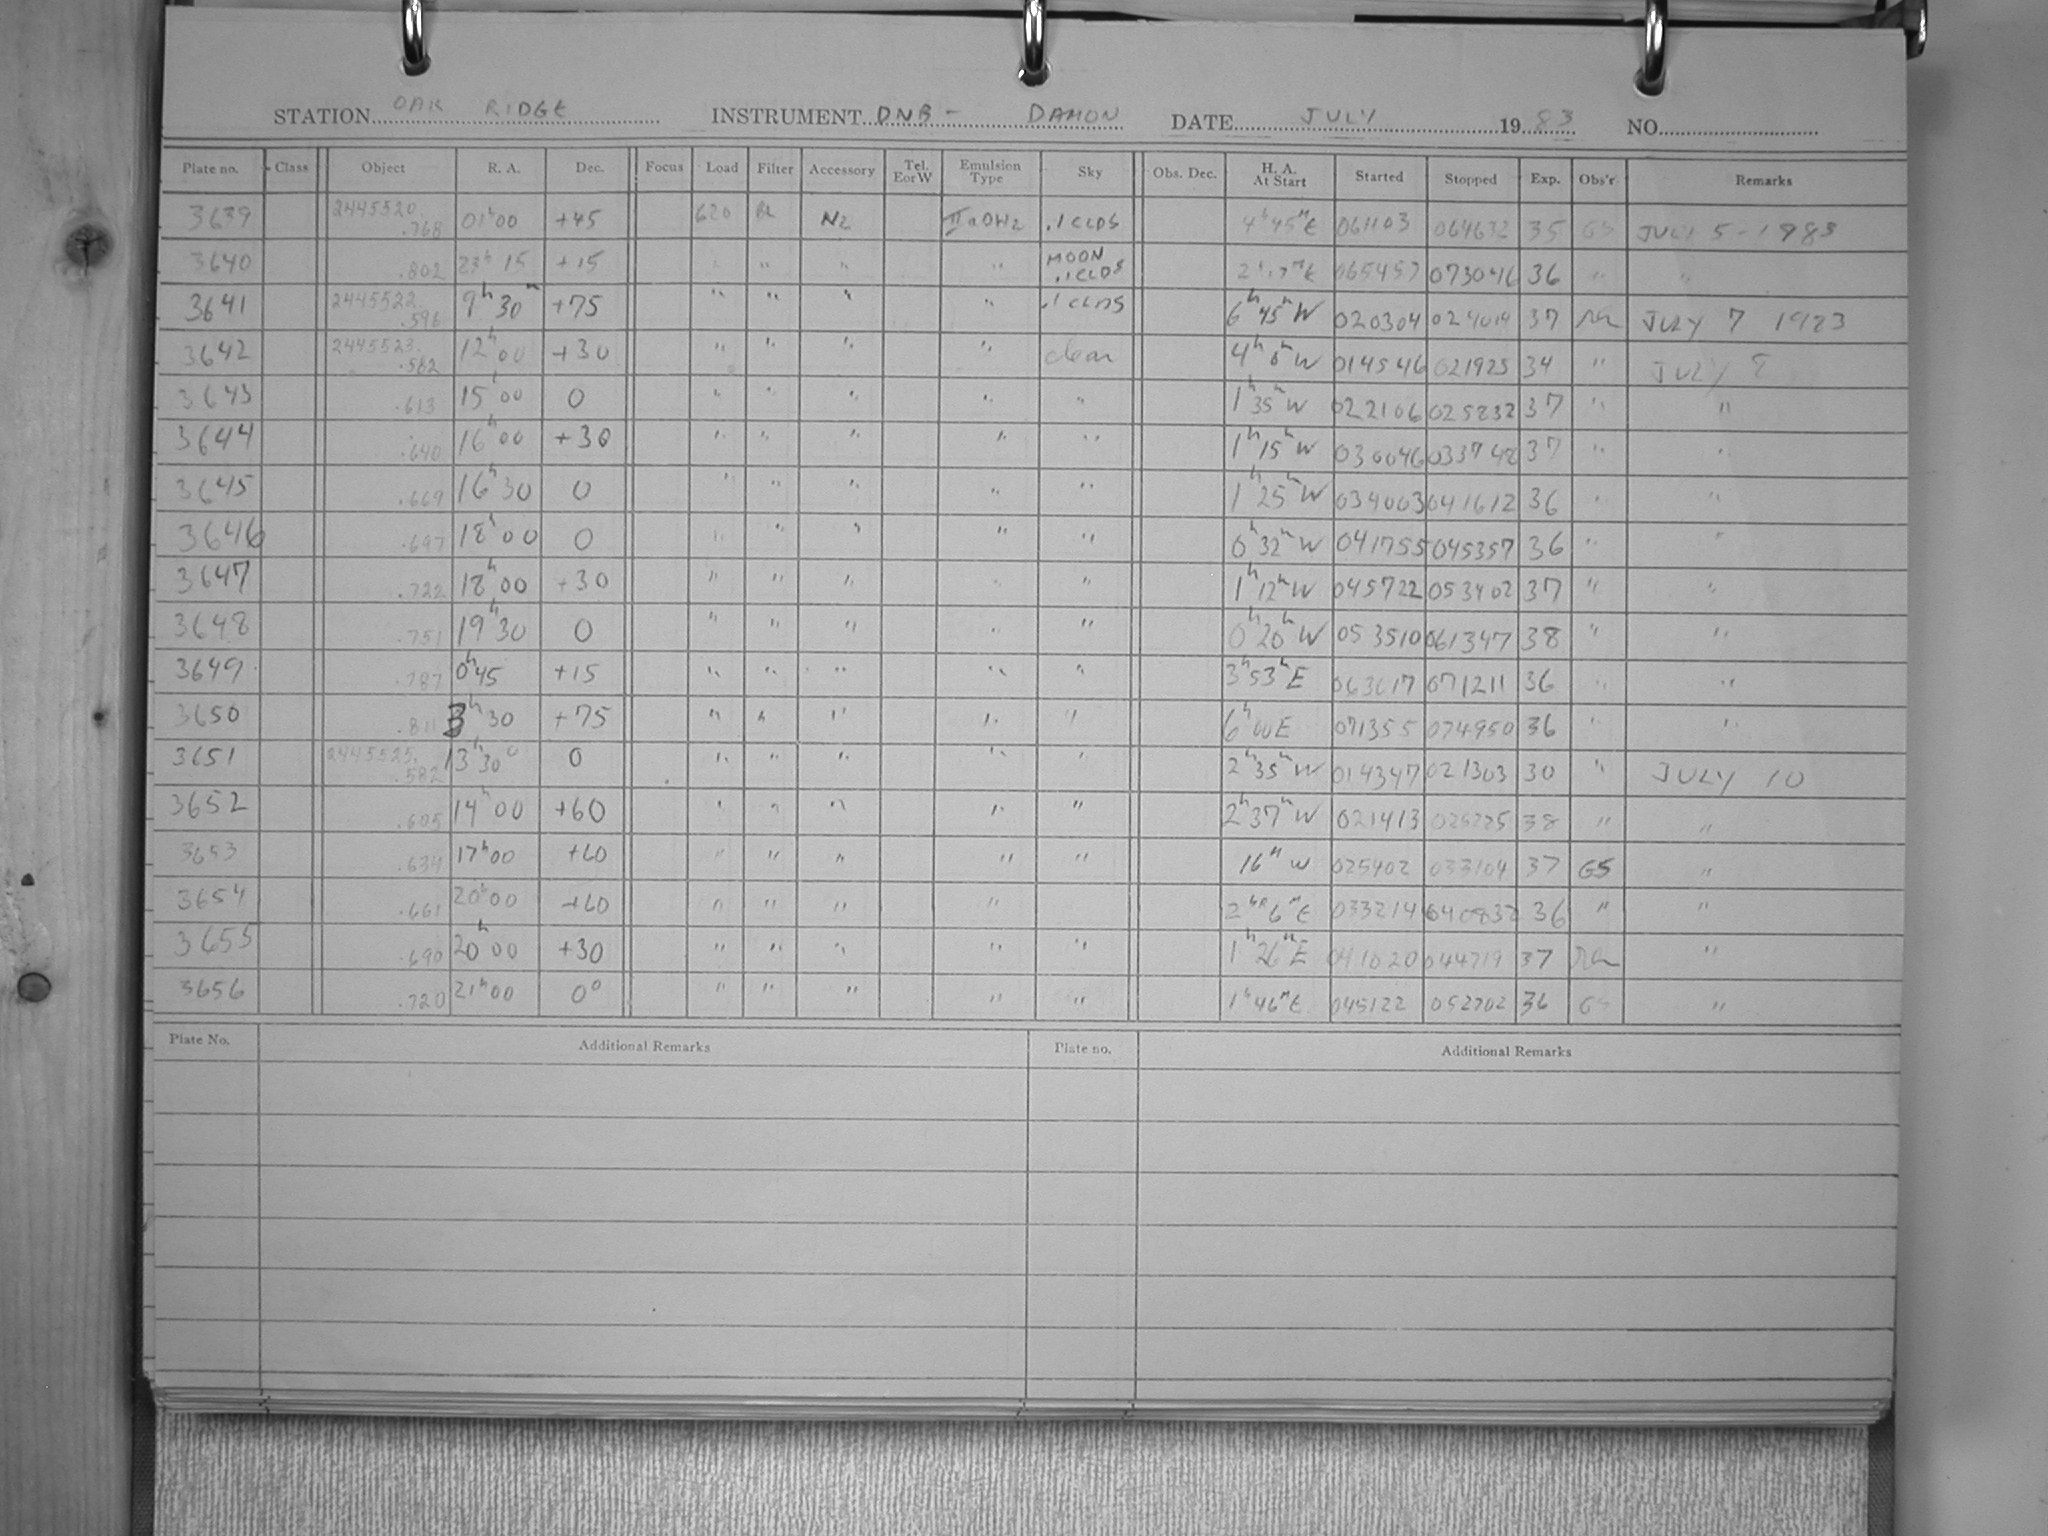 STATION OAK RIDGE INSTRUMENT DNB - DAMON DATE JULY 1983 NO.
Plate no. Class Object R. A. Dec. Focus Load Filter Accessory Tel. E or W Emulsion Type Sky Obs. Dec. H. A. At Start Started Stopped Exp. Obs'r Remarks
3639 2445520.768 01h00 +45 620 BL N2 IIaOH2 .1 CLDS 4h45mE 061103 064632 35 GS JULY 5 - 1983
3640 .802 23h 15 +15 " " " " MOON .1 CLDS 065457 073046 36 " "
3641 2445522.596 9h 30m +75 " " " " .1 CLDS 6h45mW 020304 024014 37 JULY 7 1983
3642 2445523.582 12h00 +30 " " " " clear 4h 0mW 014546 021925 34 " JULY 8
3643 .613 15h00 0 " " " " " 1h35mW 022106 025832 37 " "
3644 .640 16h00 +30 " " " " " 1h15mW 030046 033748 37 " "
3645 .669 16h30 0 " " " " " 1h25mW 034003 041612 36 " "
3646 .697 18h00 0 " " " " " 0h32mW 041755 045357 36 " "
3647 .722 18h00 +30 " " " " " 1h12mW 045722 053402 37 " "
3648 .751 19h30 0 " " " " " 0h20mW 053510 061347 38 " "
3649 .787 0h45 +15 " " " " " 3h53mE 063617 071211 36 " "
3650 .811 3h30 +75 " " " " " 6h00E 071355 074950 36 " "
3651 2445525.582 13h30 0 " " " " " 2h35mW 014347 021303 30 " JULY 10
3652 .605 14h00 +60 " " " " " 2h37mW 021413 025225 38 " "
3653 .634 17h00 +60 " " " " " 16m W 025402 033104 37 GS "
3654 .661 20h00 +60 " " " " 033214 040832 36 " "
3655 .690 20h00 +30 " " " " " 1h26mE 041020 044719 37 "
3656 .720 21h00 0° " " " " " 1h46mE 045122 052702 36 GS "
Plate No. Additional Remarks Plate no. Additional Remarks